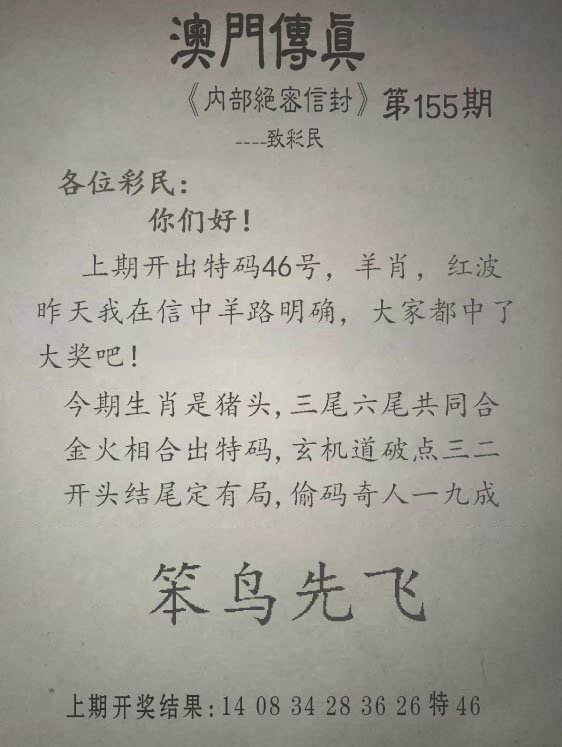 澳門傳眞
《内部絕密信封》第155期
----致彩民
各位彩民：
你们好！
上期开出特码46号，羊肖，红波
昨天我在信中羊路明确，大家都中了
大奖吧！
今期生肖是猪头,三尾六尾共同合
金火相合出特码,玄机道破点三二
开头结尾定有局,偷码奇人一九成
笨鸟先飞
上期开奖结果:14 08 34 28 36 26 特 46